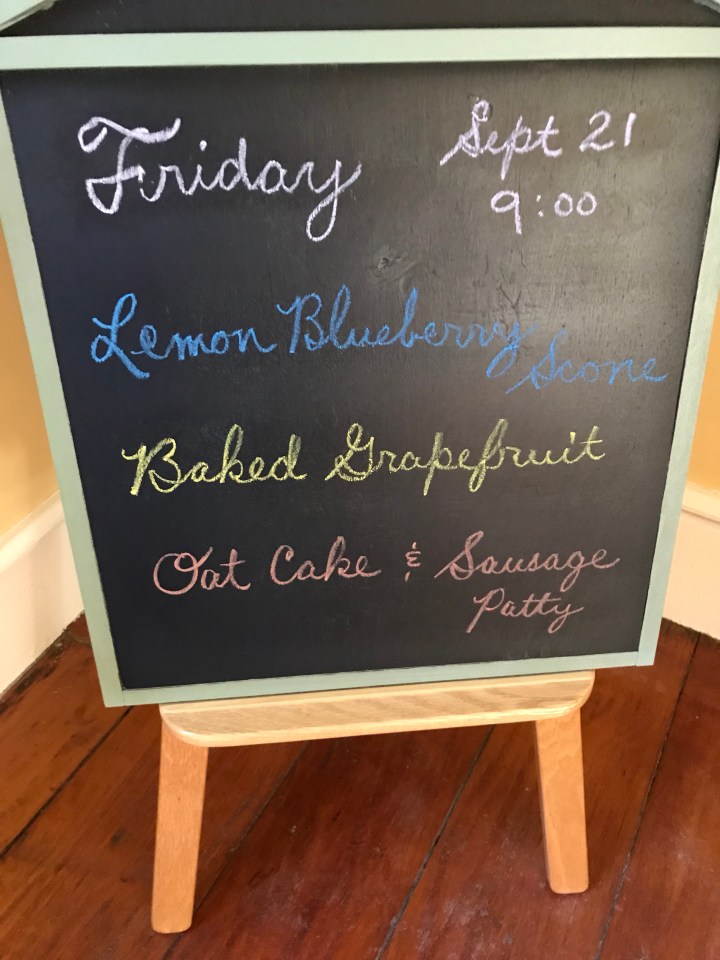 Friday
Sept 21
9:00
Lemon Blueberry
Scone
Baked Grapefruit
Oat Cake & Sausage
Patty